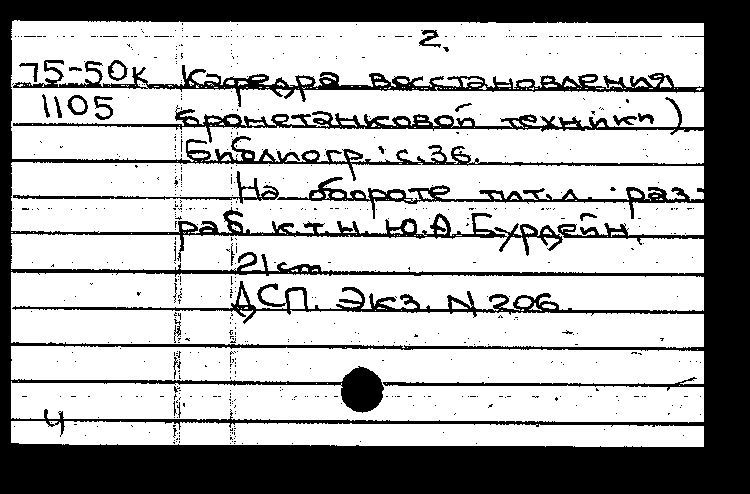 2.
75-50к Кафедра восстановления
1105 бронетанковой техники)
Библиогр.: с.36.
На обороте тит.л. : раз-
раб. к.т.н. Ю.А. Бурдейн.
21 cm
ДСП. Экз. N 206.
4